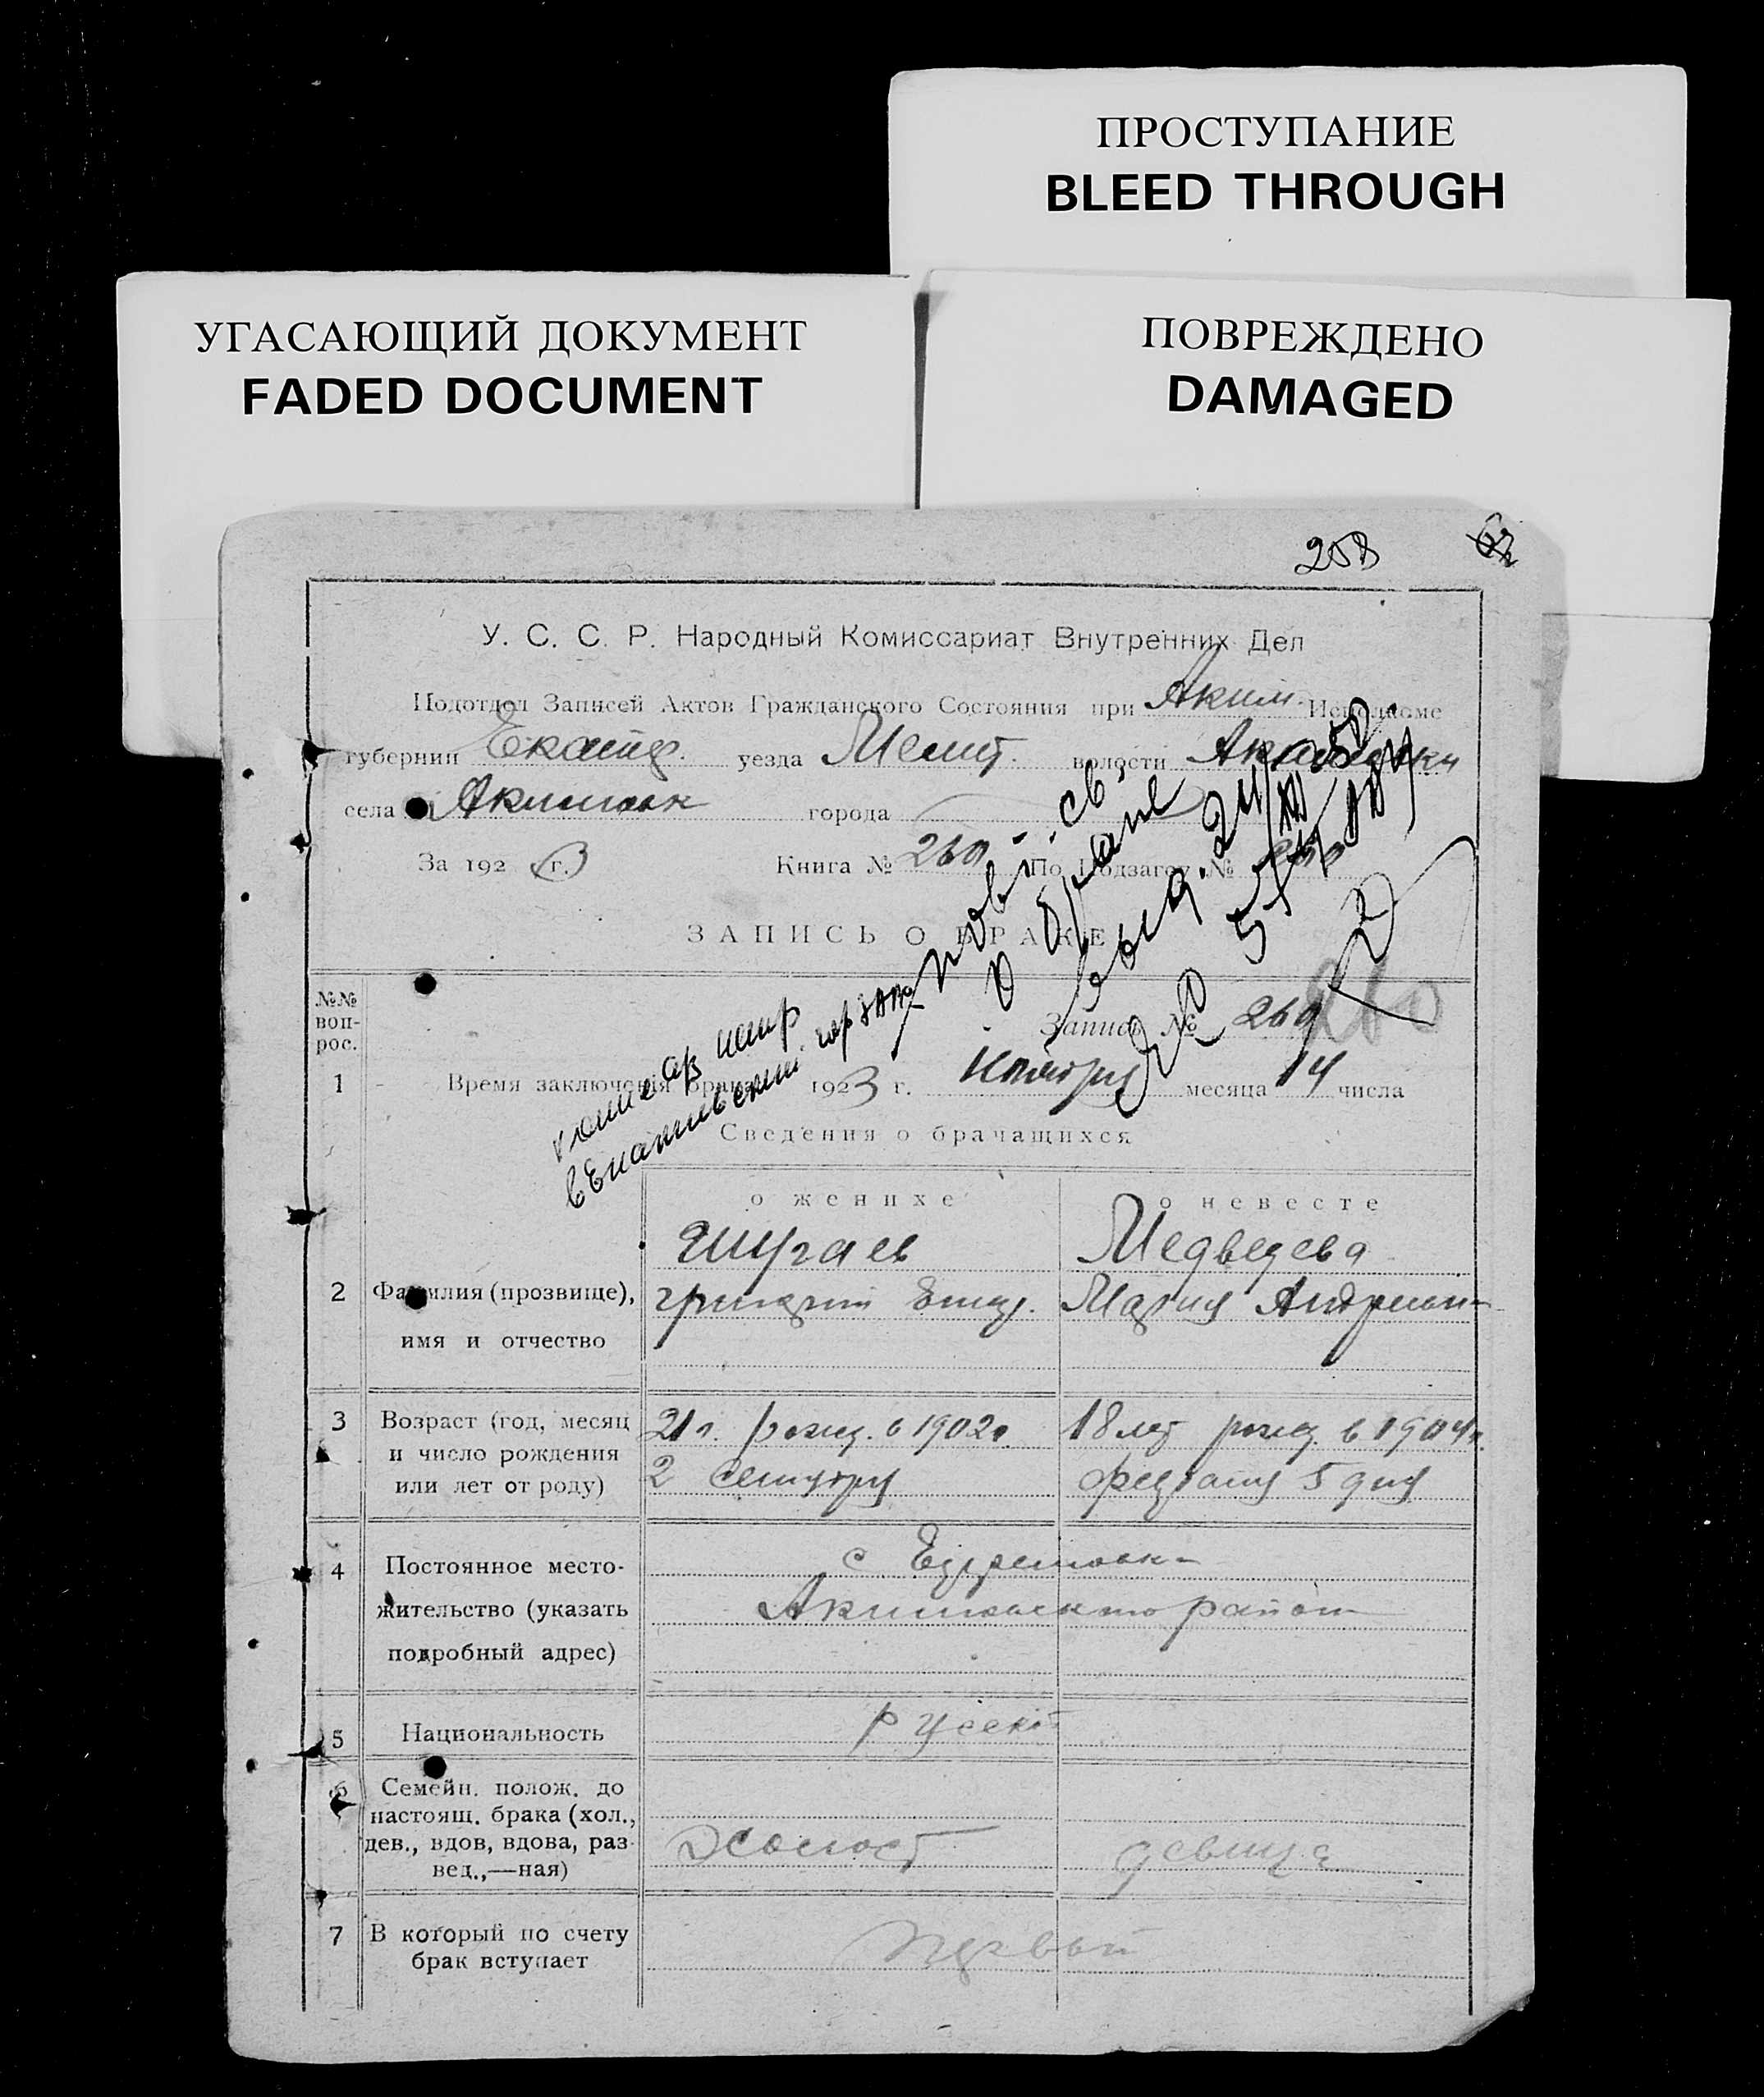 ПРОСТУПАНИЕ
BLEED THROUGH
УГАСАЮЩИЙ ДОКУМЕНТ
FADED DOCUMENT
ПОВРЕЖДЕНО
DAMAGED
258
У. С. С. Р. Народный Комиссариат Внутренних Дел
Подотдел Записей Актов Гражданского Состояния при Аким. Исполкоме
губернии Екатер. уезда Мелит. волости
села Акимовк города
За 1923 г. Книга № 260 По Подзагсу №
ЗАПИСЬ О БРАКЕ
повт. св.
о браке
выд.
№№ вопрос.
Запись № 260
1 Время заключения брака 1923 г. месяца 14 числа
Сведения о брачащихся
о женихе о невесте
Шугаев Медведева
2 Фамилия (прозвище), Григорий Мария Андреевн
имя и отчество
3 Возраст (год, месяц 21 г. рожд. в 1902 г. 18 лет рожд. в 1904 г.
и число рождения 2 Сентября февраля 5 дня
или лет от роду)
4 Постоянное место- с Ефремовк
жительство (указать Акимовского район
подробный адрес)
5 Национальность русск
6 Семейн. полож. до
настоящ. брака (хол.,
дев., вдов, вдова, раз- Холост девица
вед.,—ная)
7 В который по счету Первый
брак вступает